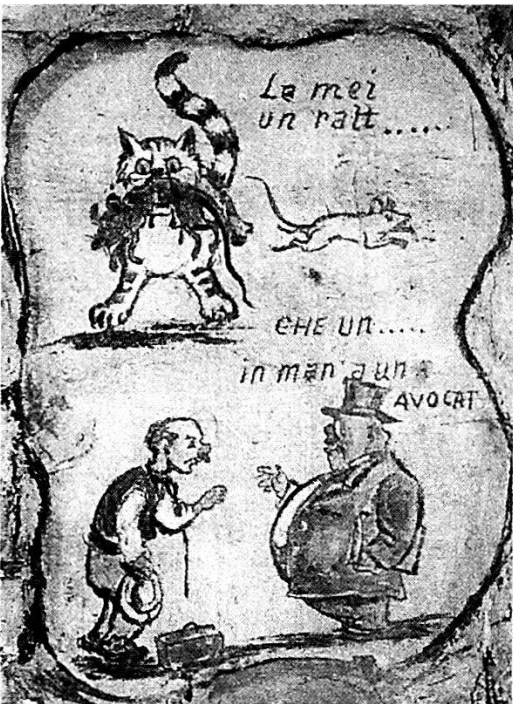 La mei
un ratt......
CHE UN.....
in man a un
AVOCAT